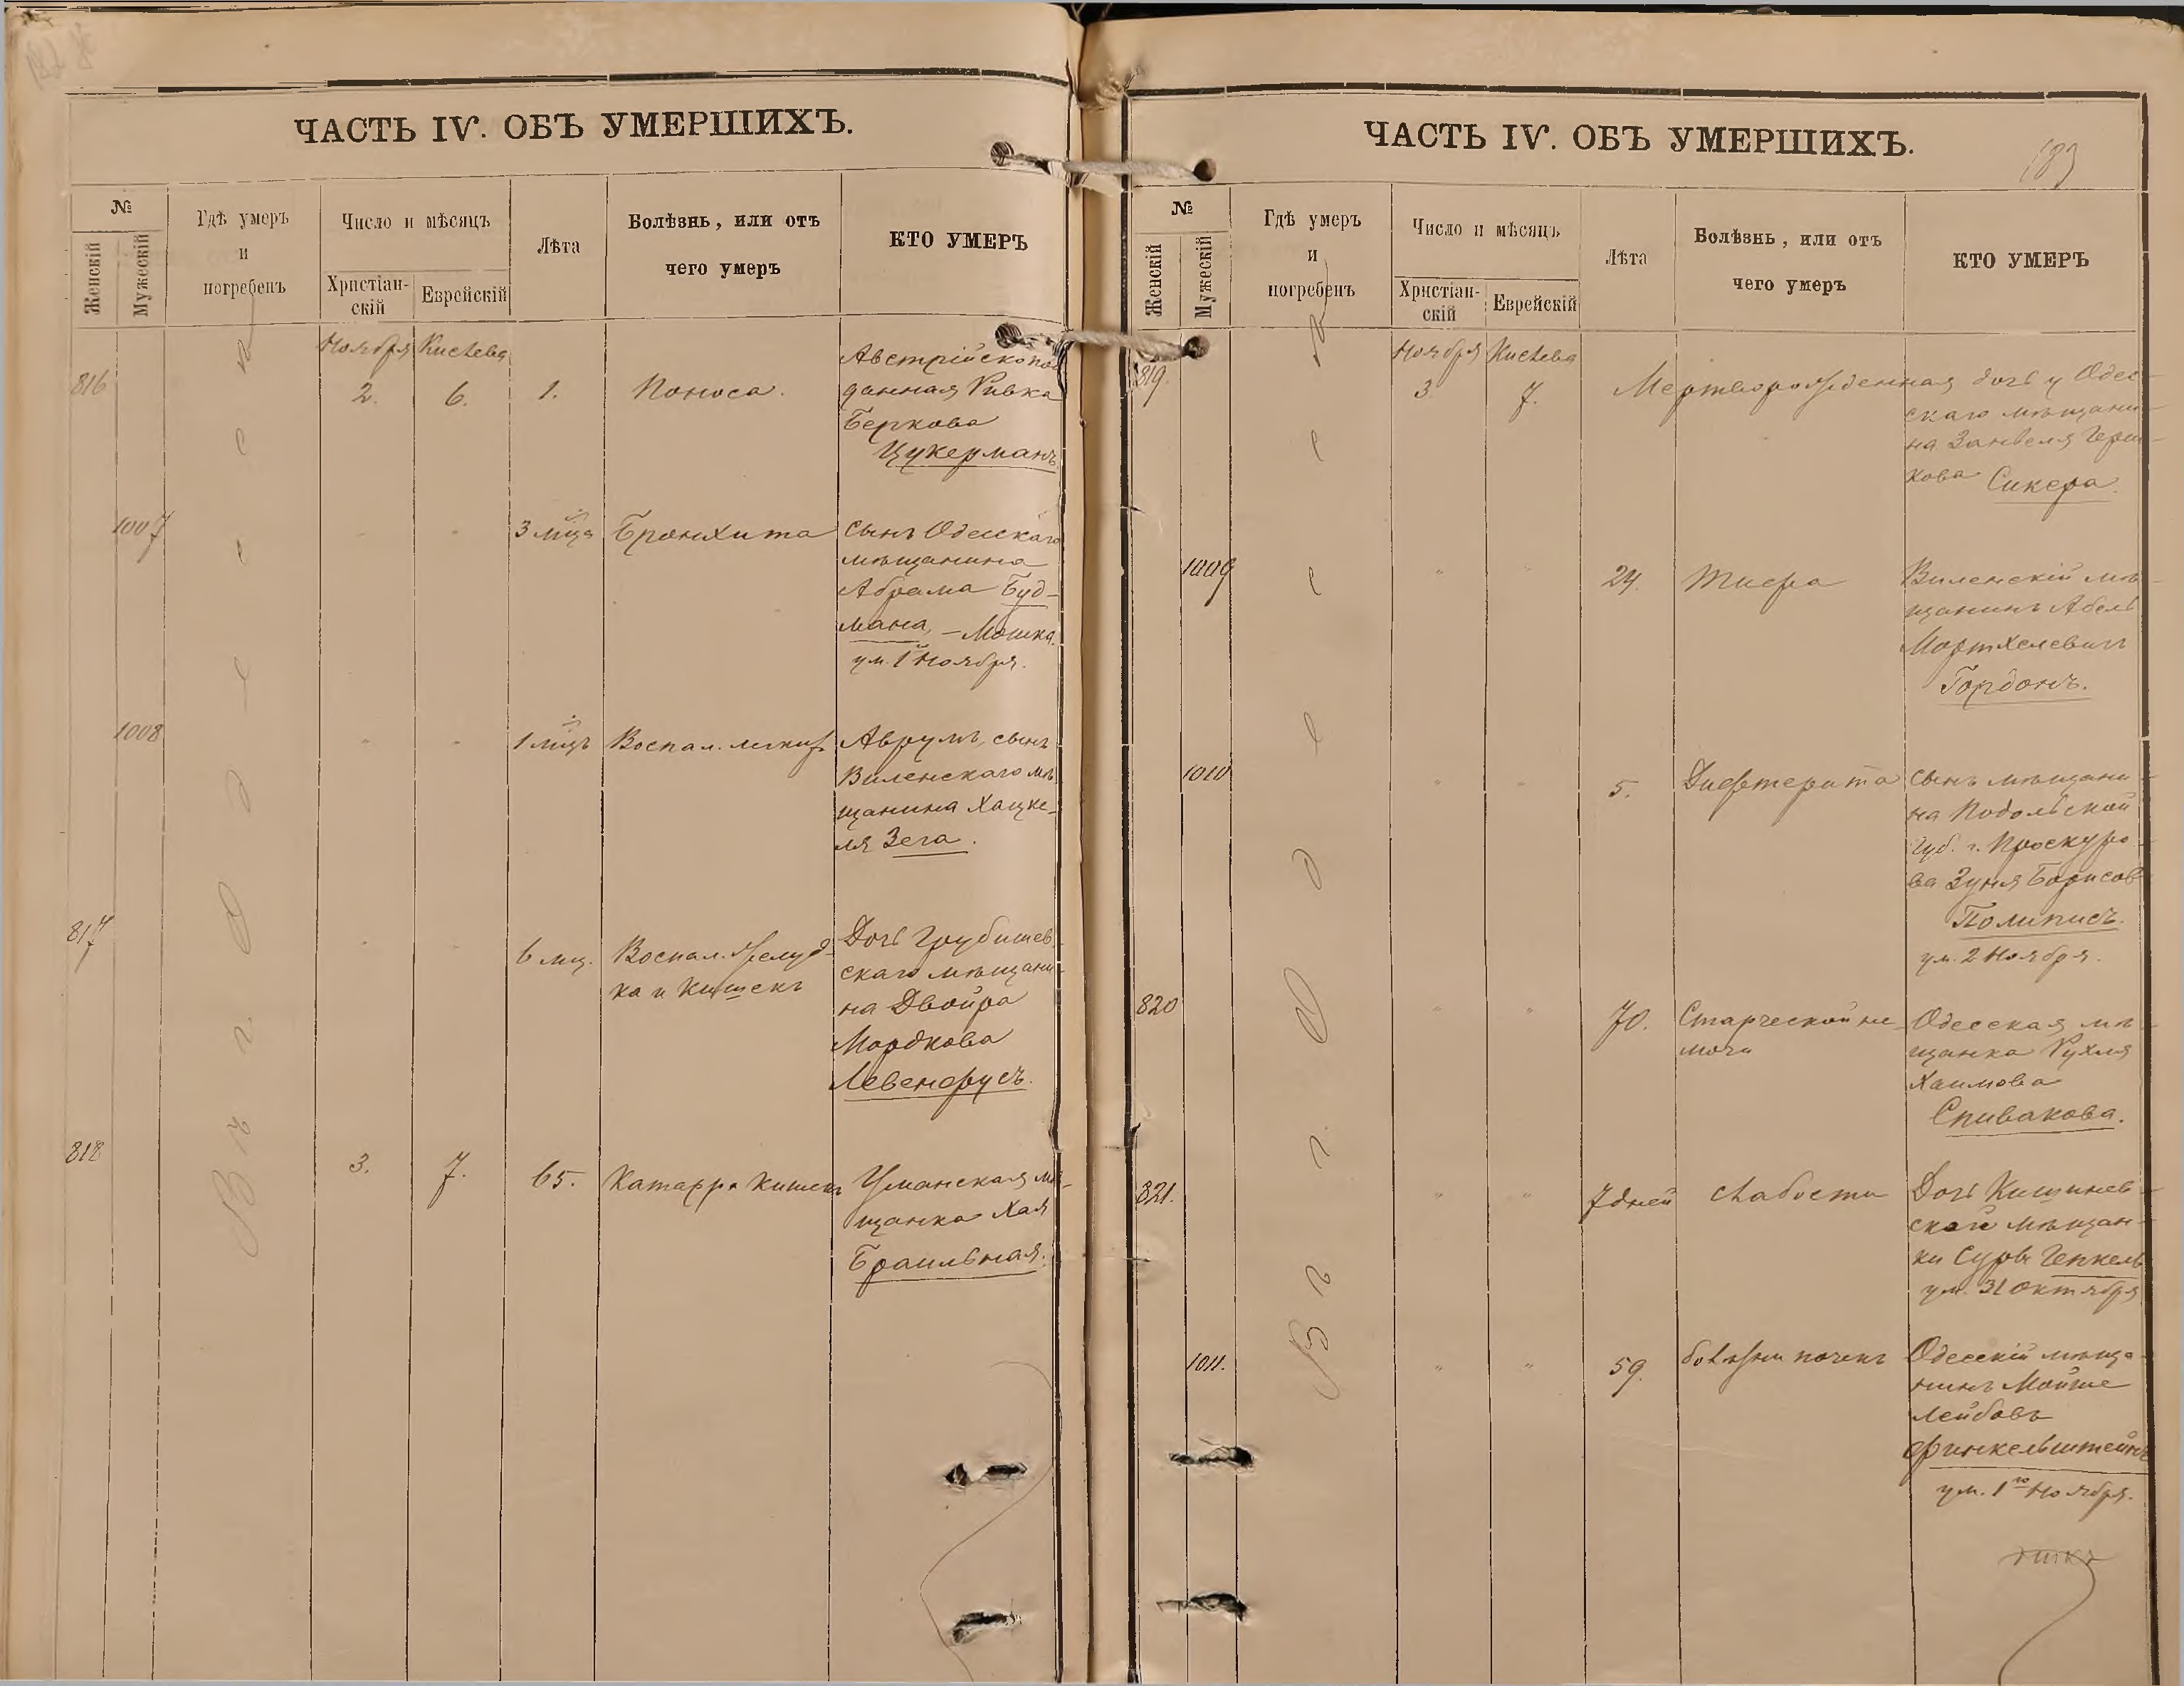 ЧАСТЬ IV. ОБЪ УМЕРШИХЪ.
№
Женскій
Мужескій
Гдѣ умеръ
и
погребенъ
Число и мѣсяцъ
Христіан-
скій
Еврейскій
Лѣта
Болѣзнь, или отъ
чего умеръ
КТО УМЕРЪ
Въ г Одессѣ
Ноября Кислева
816 2. 6. 1. Поноса.
Австрійскопод
данная Ривка
Беркова
Цукерманъ
1007 " " 3 мца Бронхита
сынъ Одесскаго
мѣщанина
Абрама Буд-
мана, - Мошка
ум. 1 Ноября.
1008 " " 1 мцъ Воспал. легких
Аврумъ, сынъ
Виленскаго мѣ
щанина Хацке-
ля Зега.
817 " " 6 мц. Воспал. желуд-
ка и кишекъ
Дочь Грубишев
скаго мѣщани-
на Двойра
Мордкова
Левенфусъ.
818 3. 7. 65. Катарра кишекъ
Уманская мѣ-
щанка Хая
Браильная.
ЧАСТЬ IV. ОБЪ УМЕРШИХЪ.
183
№
Женскій
Мужескій
Гдѣ умеръ
и
погребенъ
Число и мѣсяцъ
Христіан-
скій
Еврейскій
Лѣта
Болѣзнь, или отъ
чего умеръ
КТО УМЕРЪ
Въ г. Одессѣ
Ноября Кислева
819. 3 7. Мертворожденная дочь у Одес-
скаго мѣщани-
на Занвеля Герш-
кова Сикера.
1009 " " 24. Тифа
Виленскій мѣ-
щанинъ Абель
Мортхелевичъ
Гордонъ.
1010 " " 5. Дифтерита
сынъ мѣщани-
на Подольской
губ. г. Проскуро-
ва Зуня Борисов
Полиписъ.
ум. 2 Ноября.
820 " " 70. Старческой не-
мочи
Одесская мѣ-
щанка Рухля
Хаимова
Спивакова.
821. " " 7 дней слабости
Дочь Кишинев-
ской мѣщан-
ки Суры Генкель
ум. 31 Октября
1011. " " 59. болѣзни почекъ
Одесскій мѣща-
нинъ Мойше
Лейбовъ
Финкельштейнъ
ум. 1го Ноября.